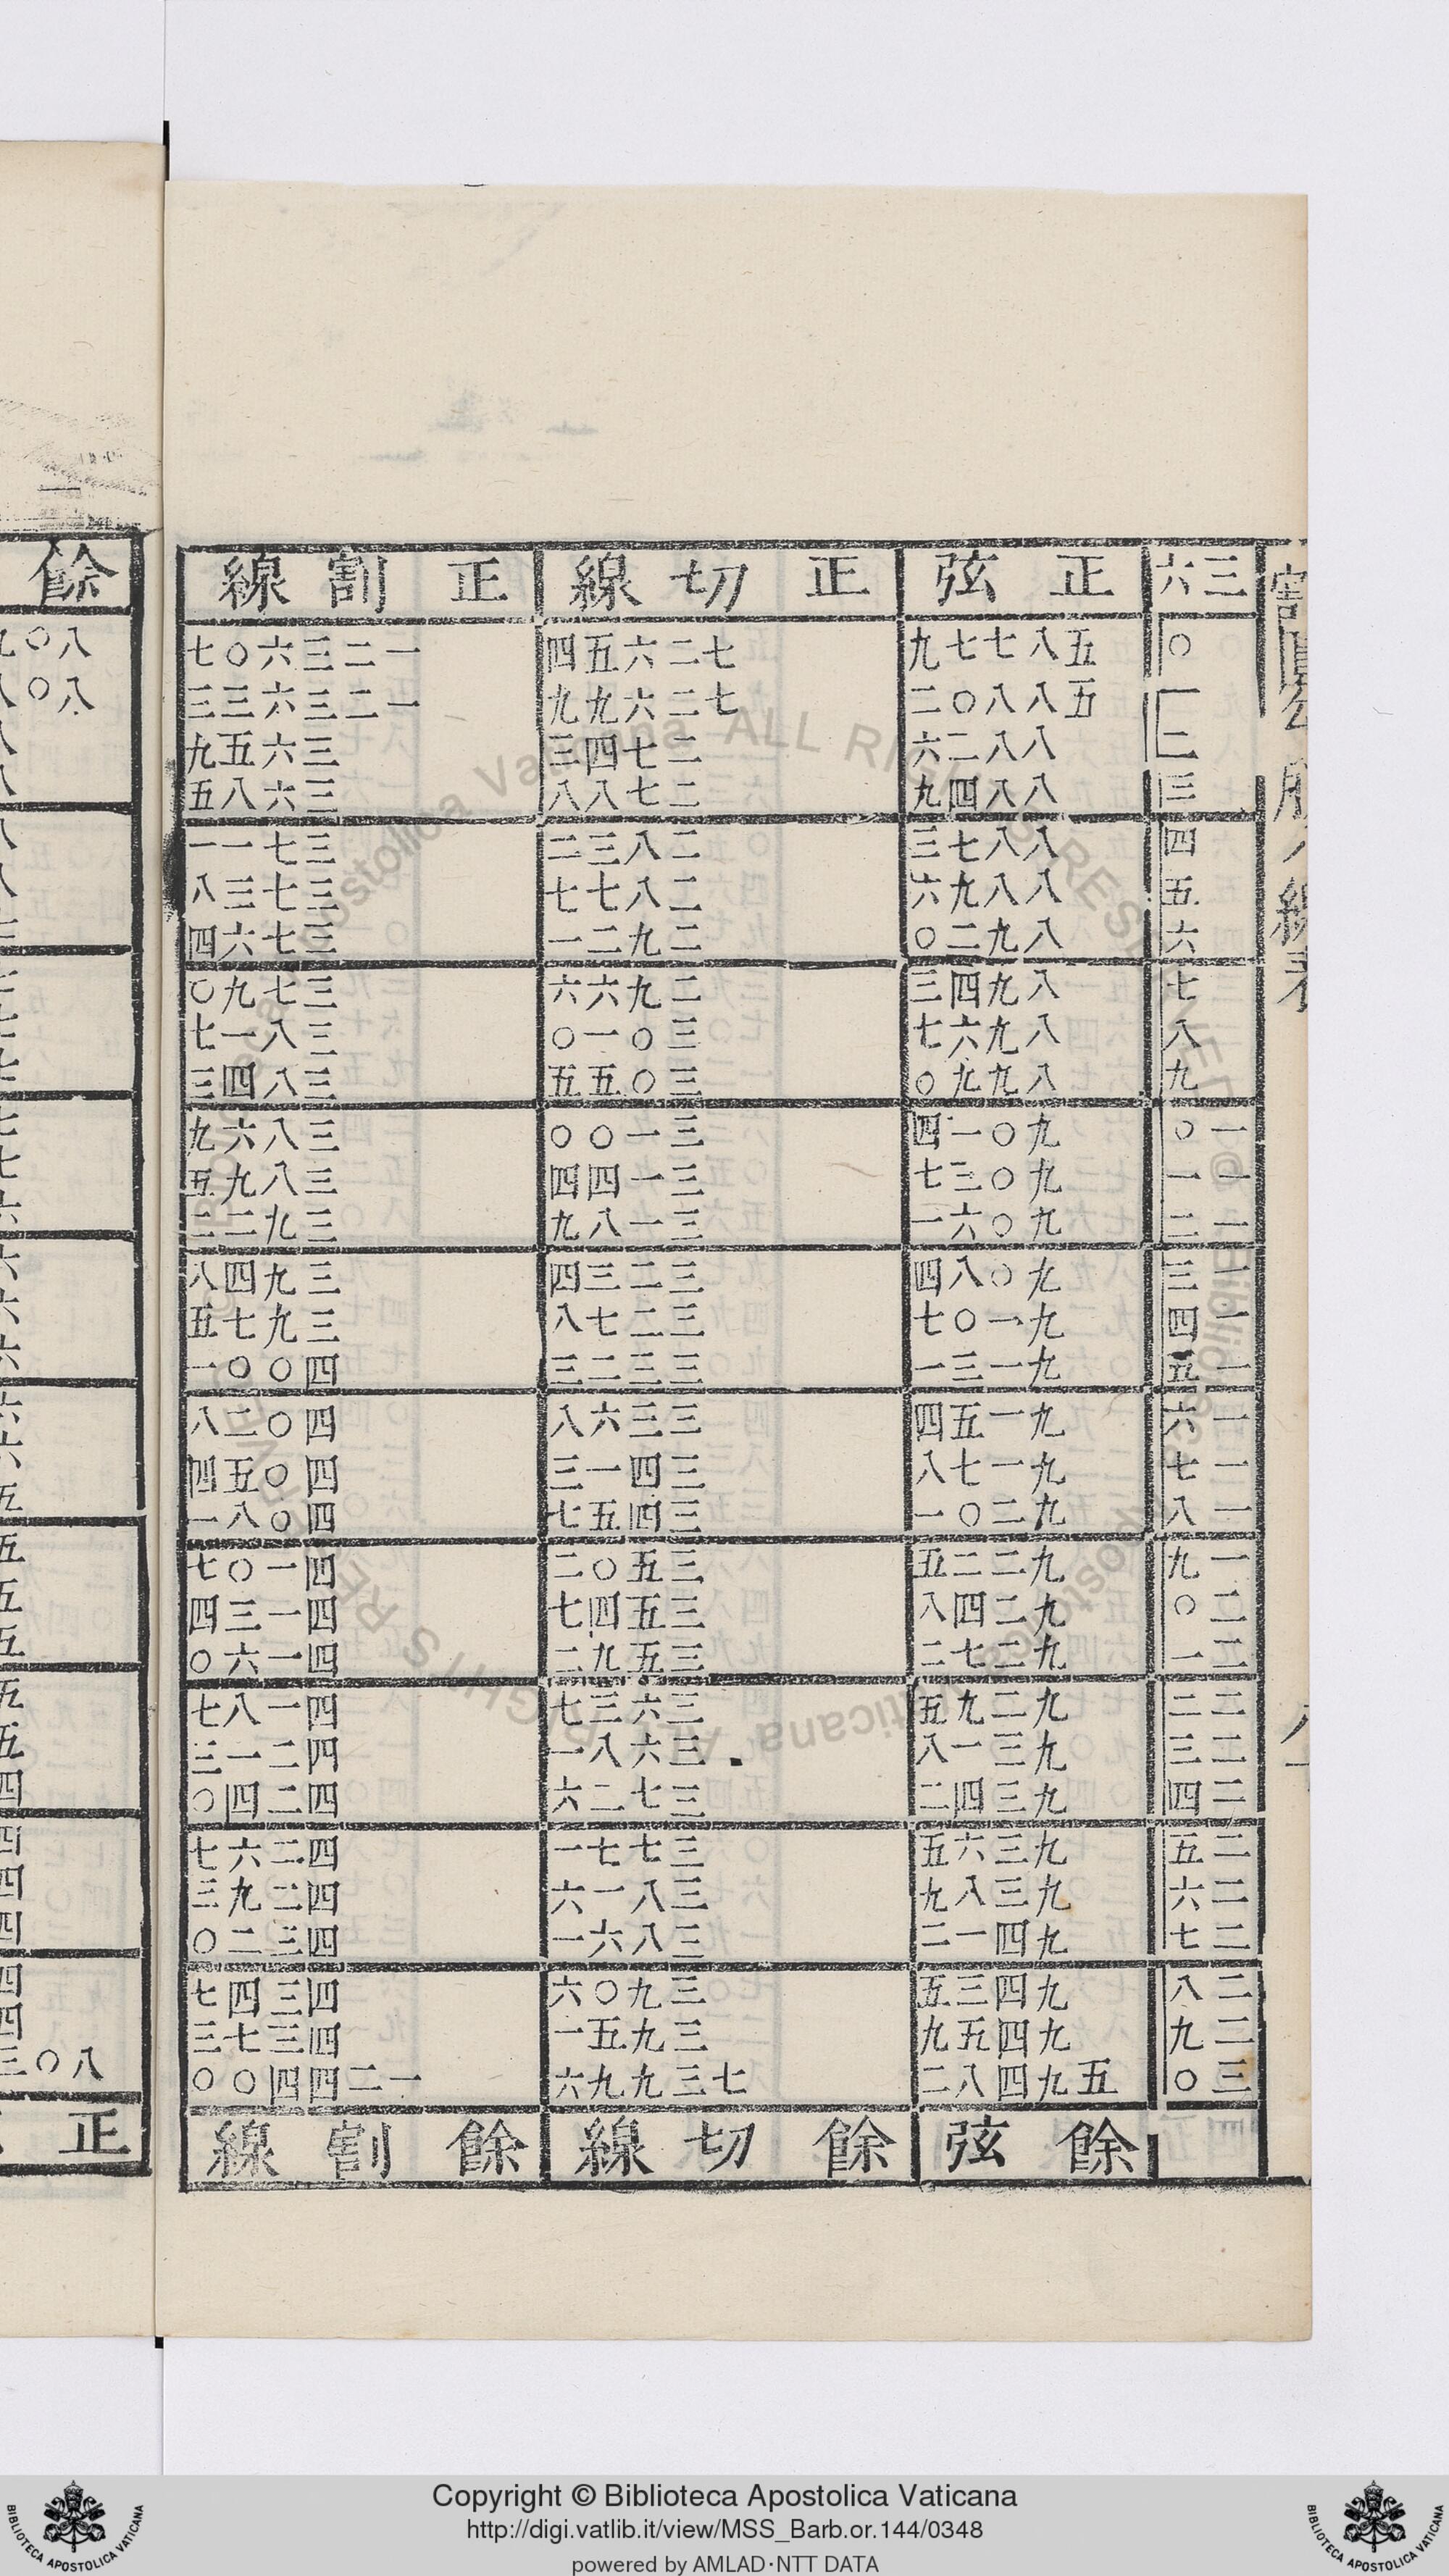 三六 正弦 正切線 正割線
〇 五八七七九 七二六五四 一二三六〇七
一 五八八〇二 七二六九九 一二三六三三
二 八八二六 二七四三 三六五九
三 八八四九 二七八八 三六八五
四 八八七三 二八三二 三七一一
五 八八九六 二八七七 三七三八
六 八九二〇 二九二一 三七六四
七 八九四三 二九六六 三七九〇
八 八九六七 三〇一〇 三八一七
九 八九九〇 三〇五五 三八四三
一〇 九〇一四 三一〇〇 三八六九
一一 九〇三七 三一四四 三八九五
一二 九〇六一 三一八九 三九二二
一三 九〇八四 三二三四 三九四八
一四 九一〇七 三二七八 三九七五
一五 九一三一 三三二三 四〇〇一
一六 九一五四 三三六八 四〇二八
一七 九一七八 三四一三 四〇五四
一八 九二〇一 三四五七 四〇八一
一九 九二二五 三五〇二 四一〇七
二〇 九二四八 三五四七 四一三四
二一 九二七二 三五九二 四一六〇
二二 九二九五 三六三七 四一八七
二三 九三一八 三六八一 四二一三
二四 九三四二 三七二六 四二四〇
二五 九三六五 三七七一 四二六七
二六 九三八九 三八一六 四二九三
二七 九四一二 三八六一 四三二〇
二八 九四三五 三九〇六 四三四七
二九 九四五九 三九五一 四三七三
三〇 五九四八二 七三九九六 一二四四〇〇
餘弦 餘切線 餘割線
餘
正
Copyright © Biblioteca Apostolica Vaticana
http://digi.vatlib.it/view/MSS_Barb.or.144/0348
powered by AMLAD·NTT DATA
BIBLIOTECA APOSTOLICA VATICANA
BIBLIOTECA APOSTOLICA VATICANA